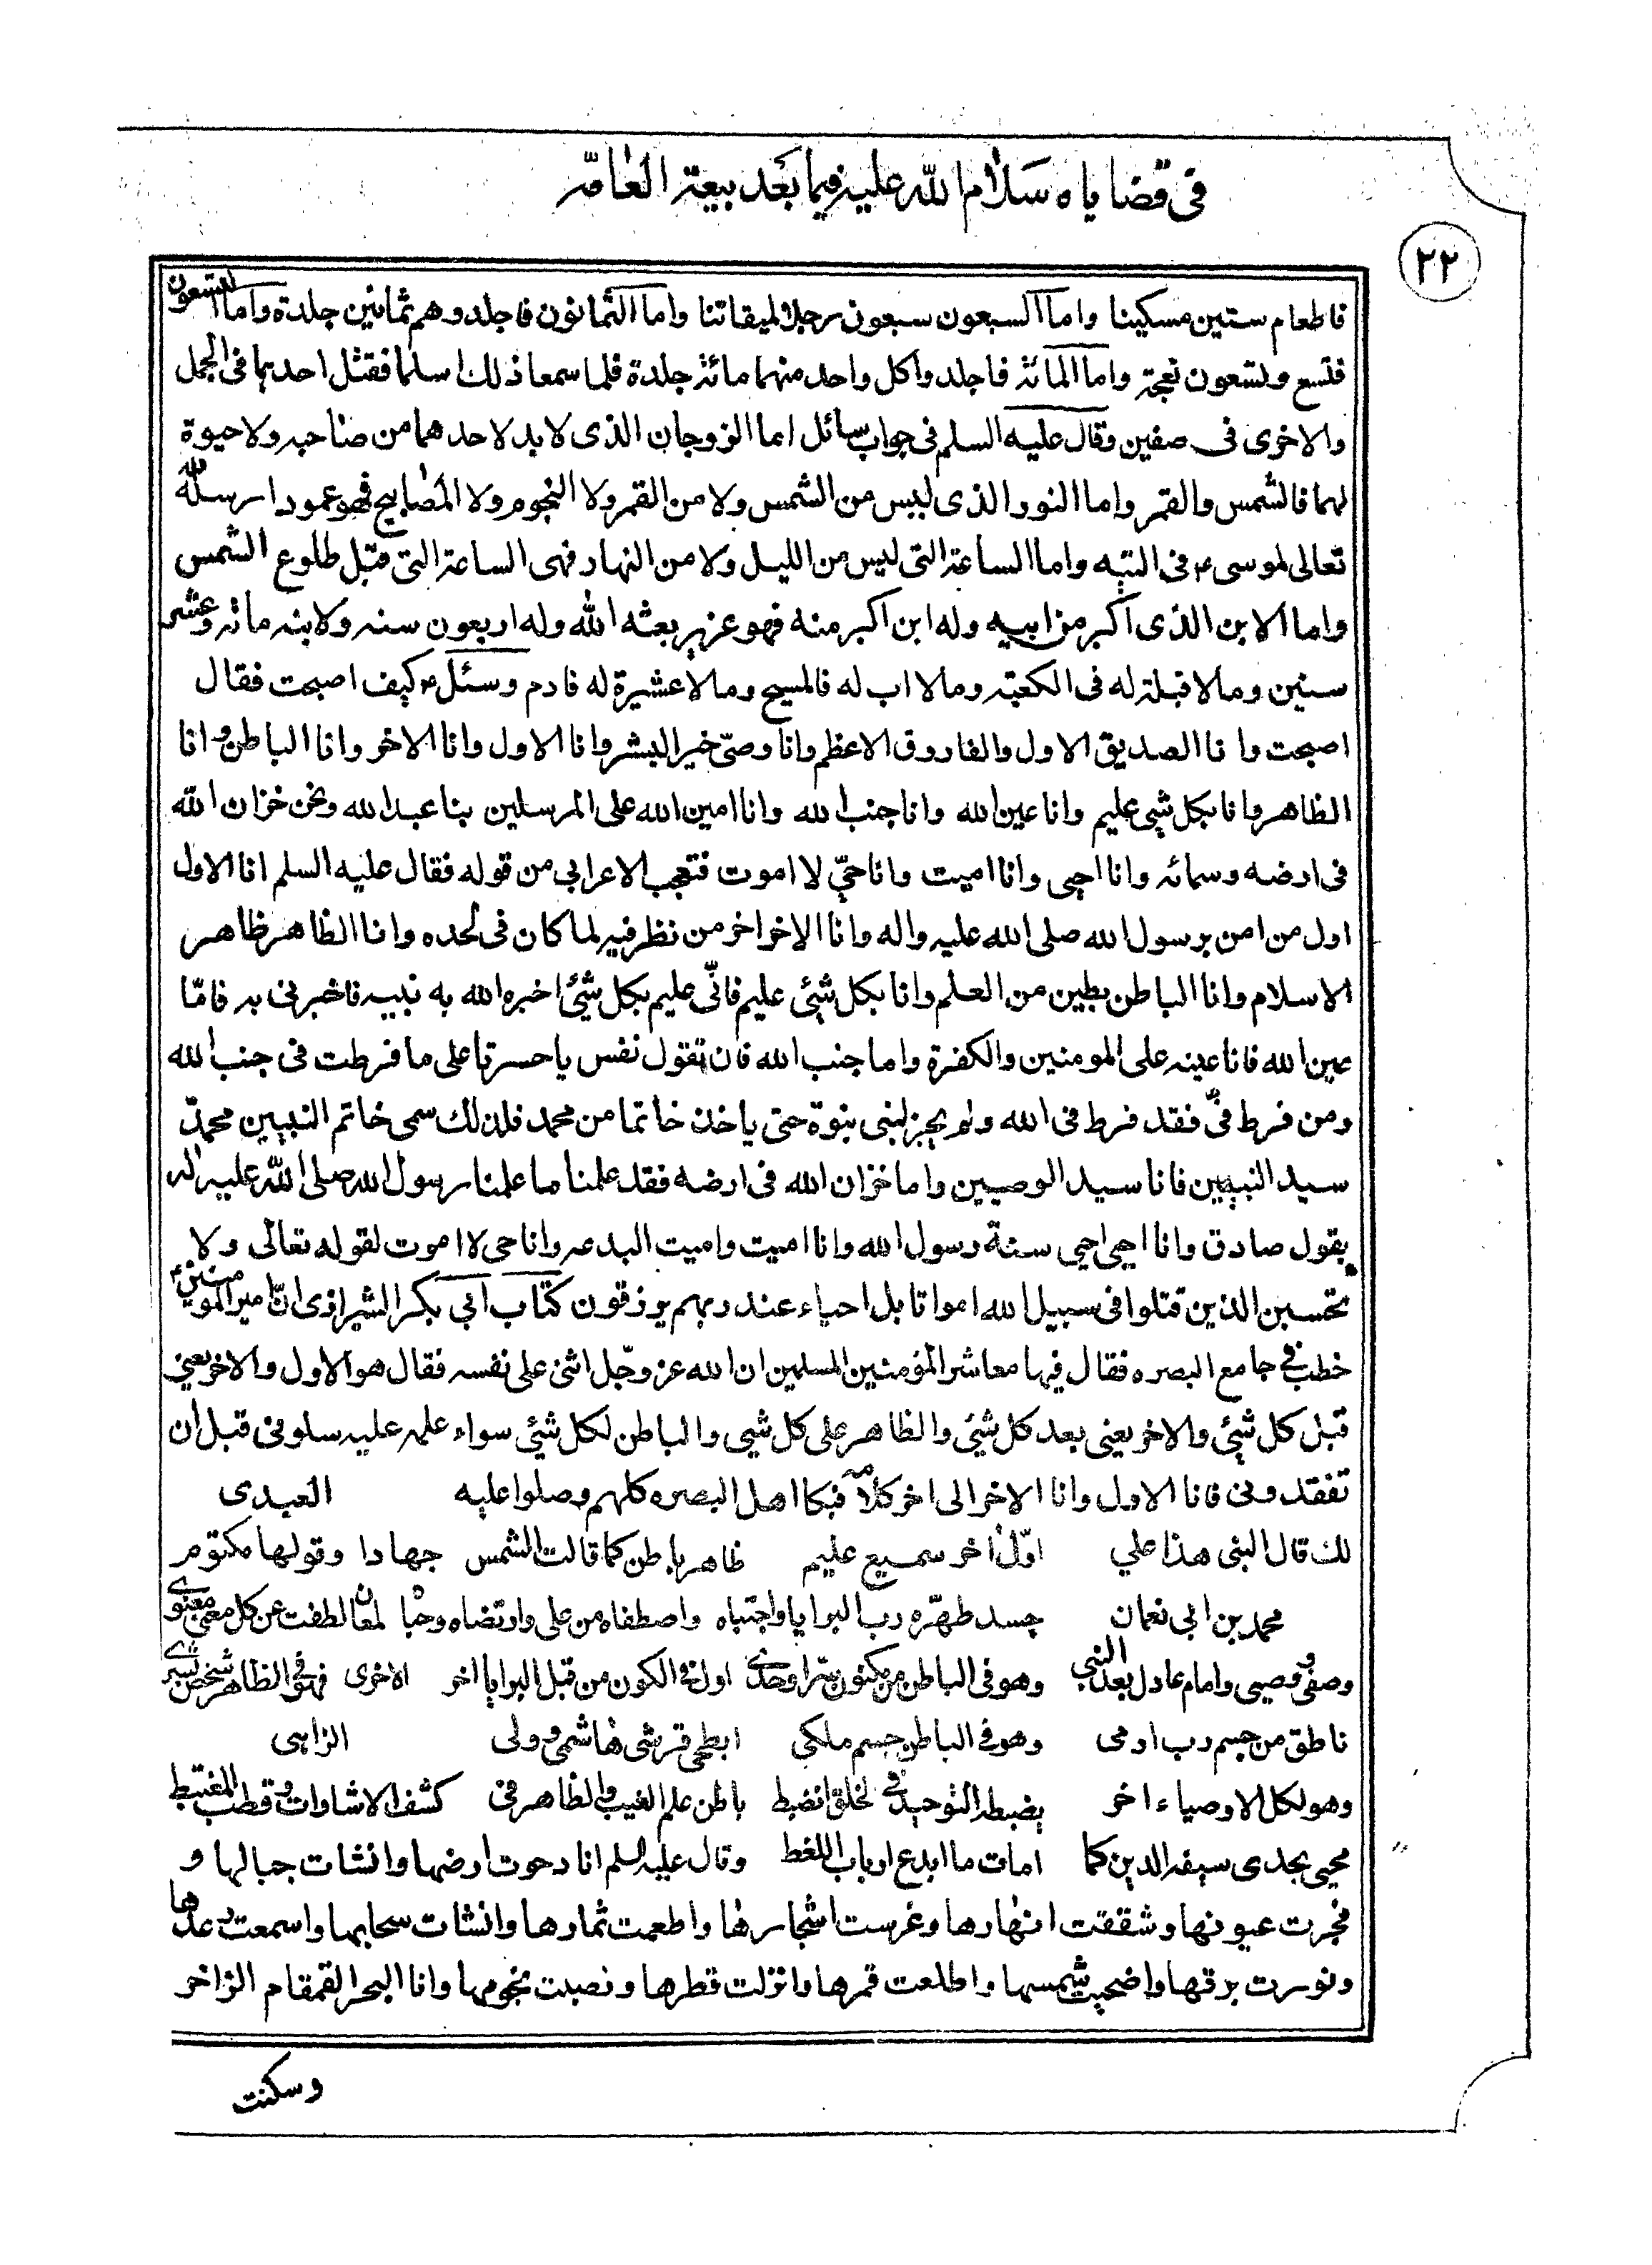 فى قضاياه سلام الله عليه فيما بعد بيعة العامة
٢٢
فاطعام ستين مسكينا واما السبعون سبعون رجلا لميقاتنا واما الثمانون فاجلدوهم ثمانين جلدة واما التسعون
فتسع وتسعون نعجة واما المائة فاجلدوا كل واحد منهما مائة جلدة فلما سمعا ذلك اسلما فقتل احدهما فى الجمل
والاخرى فى صفين وقال عليه السلم فى جواب سائل اما الزوجان الذى لا بد لاحدهما من صاحبه ولا حيوة
لهما فالشمس والقمر واما النور الذى ليس من الشمس ولا من القمر ولا النجوم ولا المصابيح فهو عمود ارسله الله
تعالى لموسى ع فى التيه واما الساعة التى ليس من الليل ولا من النهار فهى الساعة التى قبل طلوع الشمس
واما الابن الذى اكبر من ابيه وله ابن اكبر منه فهو عزير بعثه الله وله اربعون سنه ولابنه مائة وعشر
سنين وما لا قبلة له فى الكعبة وما لا اب له فالمسيح وما لا عشيرة له فادم وسئل ع كيف اصبحت فقال
اصبحت وانا الصديق الاول والفاروق الاعظم وانا وصى خير البشر وانا الاول وانا الاخر وانا الباطن وانا
الظاهر وانا بكل شيى عليم وانا عين الله وانا جنب الله وانا امين الله على المرسلين بنا عبد الله ونحن خزان الله
فى ارضه وسمائه وانا احيى وانا اميت وانا حيّ لا اموت فتعجب الاعرابى من قوله فقال عليه السلم انا الاول
اول من امن برسول الله صلى الله عليه واله وانا الاخر اخر من نظر فيه لما كان فى لحده وانا الظاهر ظاهر
الاسلام وانا الباطن بطين من العلم وانا بكل شيئ عليم فانّى عليم بكل شيئ اخبره الله به نبيه فاخبرنى به فامّا
عين الله فانا عينه على المومنين والكفرة واما جنب الله فان تقول نفس يا حسرتا على ما فرطت فى جنب الله
ومن فرط فىّ فقد فرط فى الله ولم يجز لنبى نبوة حتى ياخذ خاتما من محمد فلذلك سمى خاتم النبيين محمدّ
سيد النبيين فانا سيد الوصيين واما خزان الله فى ارضه فقد علمنا ما علمنا رسول الله صلى الله عليه واله
بقول صادق وانا احيى احيى سنة رسول الله وانا اميت واميت البدعه وانا حى لا اموت لقوله تعالى ولا
تحسبن الذين قتلوا فى سبيل الله امواتا بل احياء عند ربهم يرزقون كتاب ابى بكر الشيرازى انّ امير المومنين ع
خطب فى جامع البصره فقال فيها معاشر المؤمنين المسلمين ان الله عز وجّل اثنى على نفسه فقال هو الاول والاخر يعنى
قبل كل شيئ والاخر يعنى بعد كل شيئ والظاهر على كل شيى والباطن لكل شيئ سواء علمه عليه سلونى قبل ان
تفقدونى فانا الاول وانا الاخر الى اخر كلامه فبكا اهل البصره كلهم وصلوا عليه العبدى
لك قال النبى هذا على اوّل اخر سميع عليم ظاهر باطن كما قالت الشمس جهادا وقولها مكتوم
محمد بن ابى نعمان جسد طهّره رب البرايا واجتباه واصطفاه من على وارتضاه وحبا لمعان لطفت عن كل معنى معنوى
وصفى ووصيى وامام عادل بعد النبى وهو فى الباطن من مكنون سرّ اوحدى اول فى الكون من قبل البرايا اخر الاخرى فهو فى الظاهر شخص بشرى
ناطق من جسم رب ادمى وهو فى الباطن جسم ملكى ابطحى قرشى هاشمى وولى الزاهى
وهو لكل الاوصياء اخر بضبطه التوحيد فى الخلق انضبط باطن علم الغيب والظاهر فى كشف الاشاوات وقطب المغتبط
محيى بحدى سيفه الدين كما امات ما ابدع ارباب اللغط وقال عليه السلم انا دحوت ارضها وانشات جبالها و
فجرت عيونها وشققت انهارها وغرست اشجارها واطعمت ثمارها وانشات سحابها واسمعت رعدها
ونورت برقها واضحيت شمسها واطلعت قمرها وانزلت قطرها ونصبت نجومها وانا البحر القمقام الزاخر
وسكنت